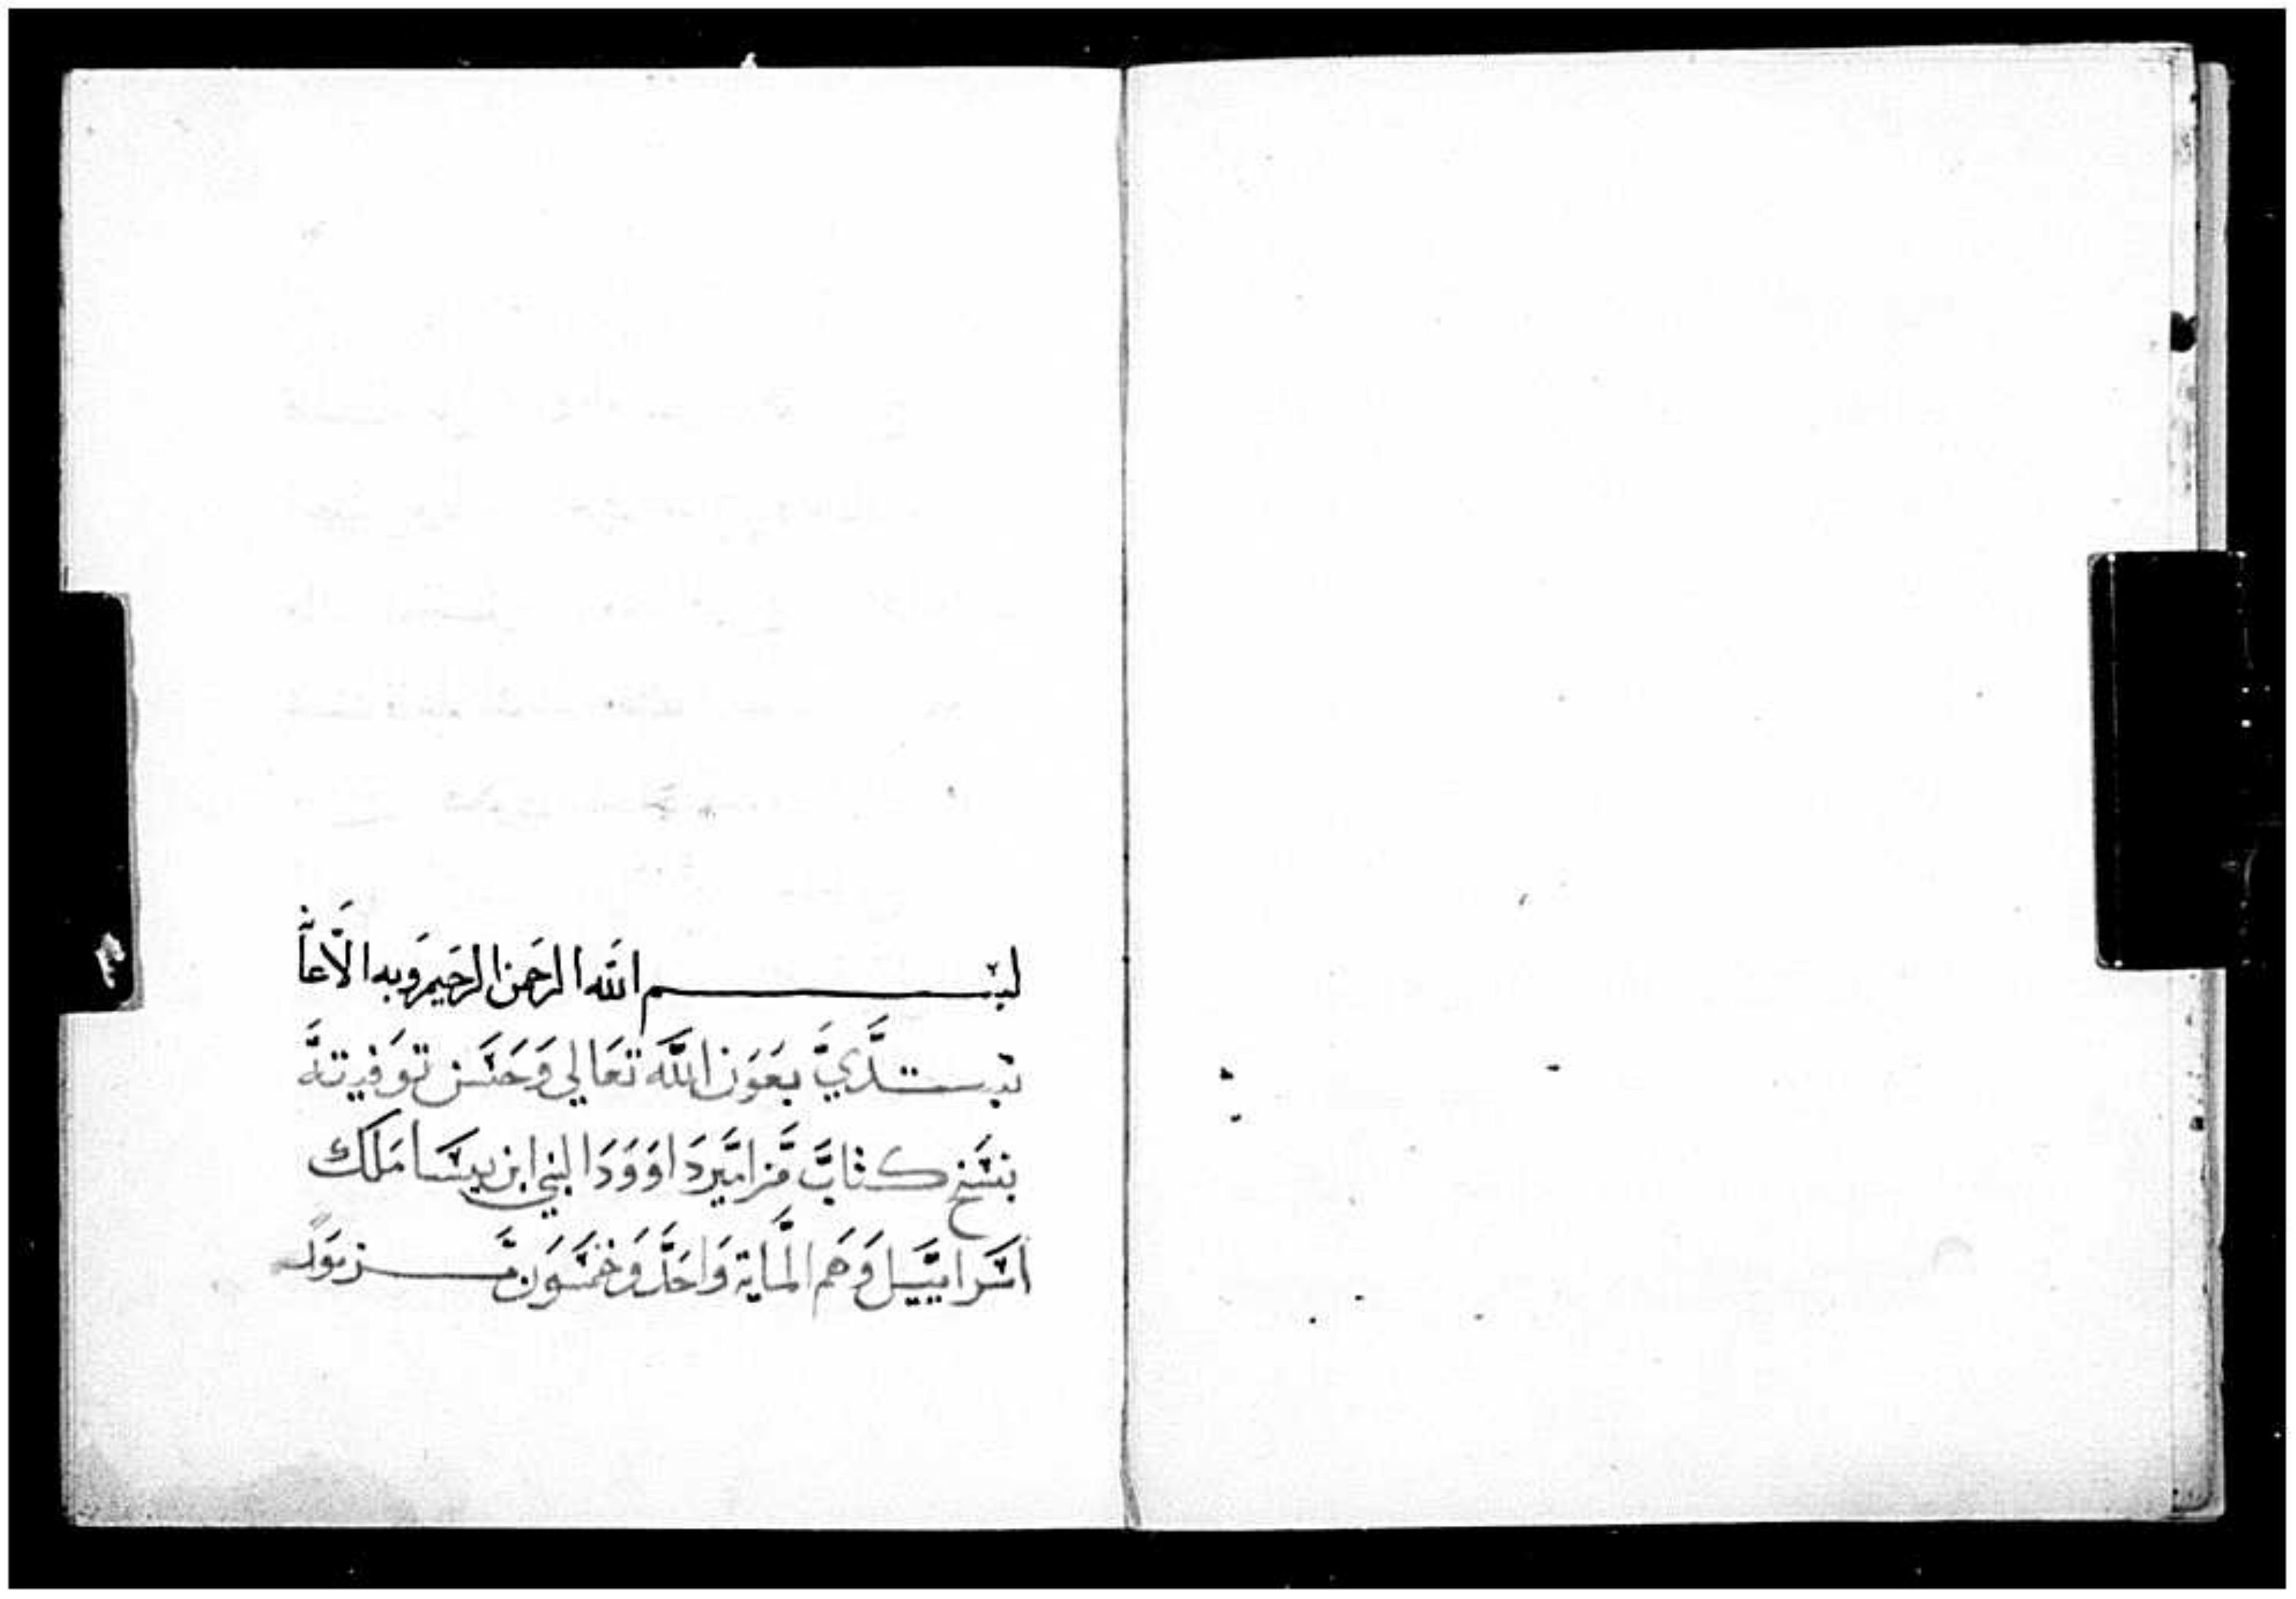 بسم الله الرحمن الرحيم وبه الاعا
نبستدي بعون الله تعالي وحسن توفيقه
بنسخ كتاب مزامير داوود النبي ابن يسا ملك
اسراييل وهم الماية واحد وخمسون مزمور